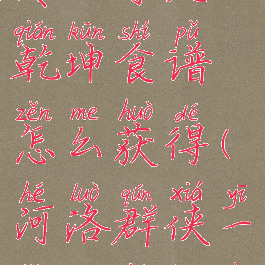 qián kūn shí pǔ
乾坤食谱
zěn me huò dé
怎么获得(
hé luò qún xiá yī
河洛群侠一